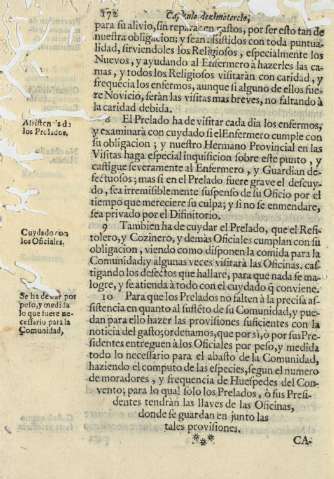 272 Capitulo dezimotercio,
para su alivio, sin reparar en gastos, por ser esto tan de
nuestra obligacion: y sean assistidos con toda puntua-
lidad, sirviendoles los Religiosos, especialmente los
Nuevos, y ayudando al Enfermero à hazerles las ca-
mas, y todos los Religiosos visitaràn con caridad, y
frequecia los enfermos, aunque si alguno de ellos fue-
re Novicio, seràn las visitas mas breves, no faltando à
la caridad debida.
Assisten
los Prelados.
8 El Prelado ha de visitar cada dia los enfermos,
y examinarà con cuydado si el Enfermero cumple con
su obligacion; y nuestro Hermano Provincial en las
Visitas haga especial inquisicion sobre este punto, y
castigue severamente al Enfermero, y Guardian de-
fectuosos; mas si en el Prelado fuere grave el descuy-
do, sea irremisiblemente suspenso de su Oficio por el
tiempo que mereciere su culpa; y si no se enmendare,
sea privado por el Difinitorio.
Cuydado con
los Oficiales.
9 Tambien ha de cuydar el Prelado, que el Refi-
tolero, y Cozinero, y demàs Oficiales cumplan con su
obligacion, viendo como disponen la comida para la
Comunidad; y algunas vezes visitarà las Oficinas, cas-
tigando los defectos que hallare, para que nada se ma-
logre, y se atienda à todo con el cuydado q̃ conviene.
Se ha de dar por
peso, y medida
lo que fuere ne-
cessario para la
Comunidad,
10 Para que los Prelados no falten à la precisa as-
sistencia en quanto al sustẽto de su Comunidad, y pue-
dan para ello hazer las provisiones suficientes con la
noticia del gasto; ordenamos, que por si, ò por sus Pre-
sidentes entreguen à los Oficiales por peso, y medida
todo lo necessario para el abasto de la Comunidad,
haziendo el computo de las especies, segun el numero
de moradores, y frequencia de Huespedes del Con-
vento; para lo qual solo los Prelados, ò sus Presi-
dentes tendràn las llaves de las Oficinas,
donde se guardan en junto las
tales provisiones.
CA-